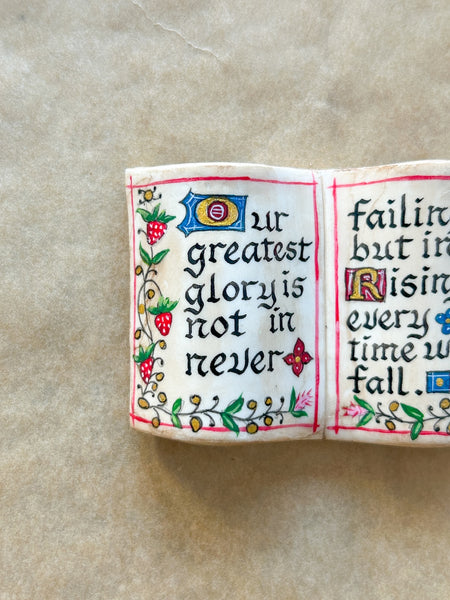 Our
greatest
glory is
not in
never
failin
but in
Risin
every
time w
fall.